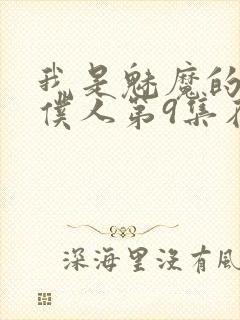 我是魅魔的
僕人第9集在
深海里沒有風